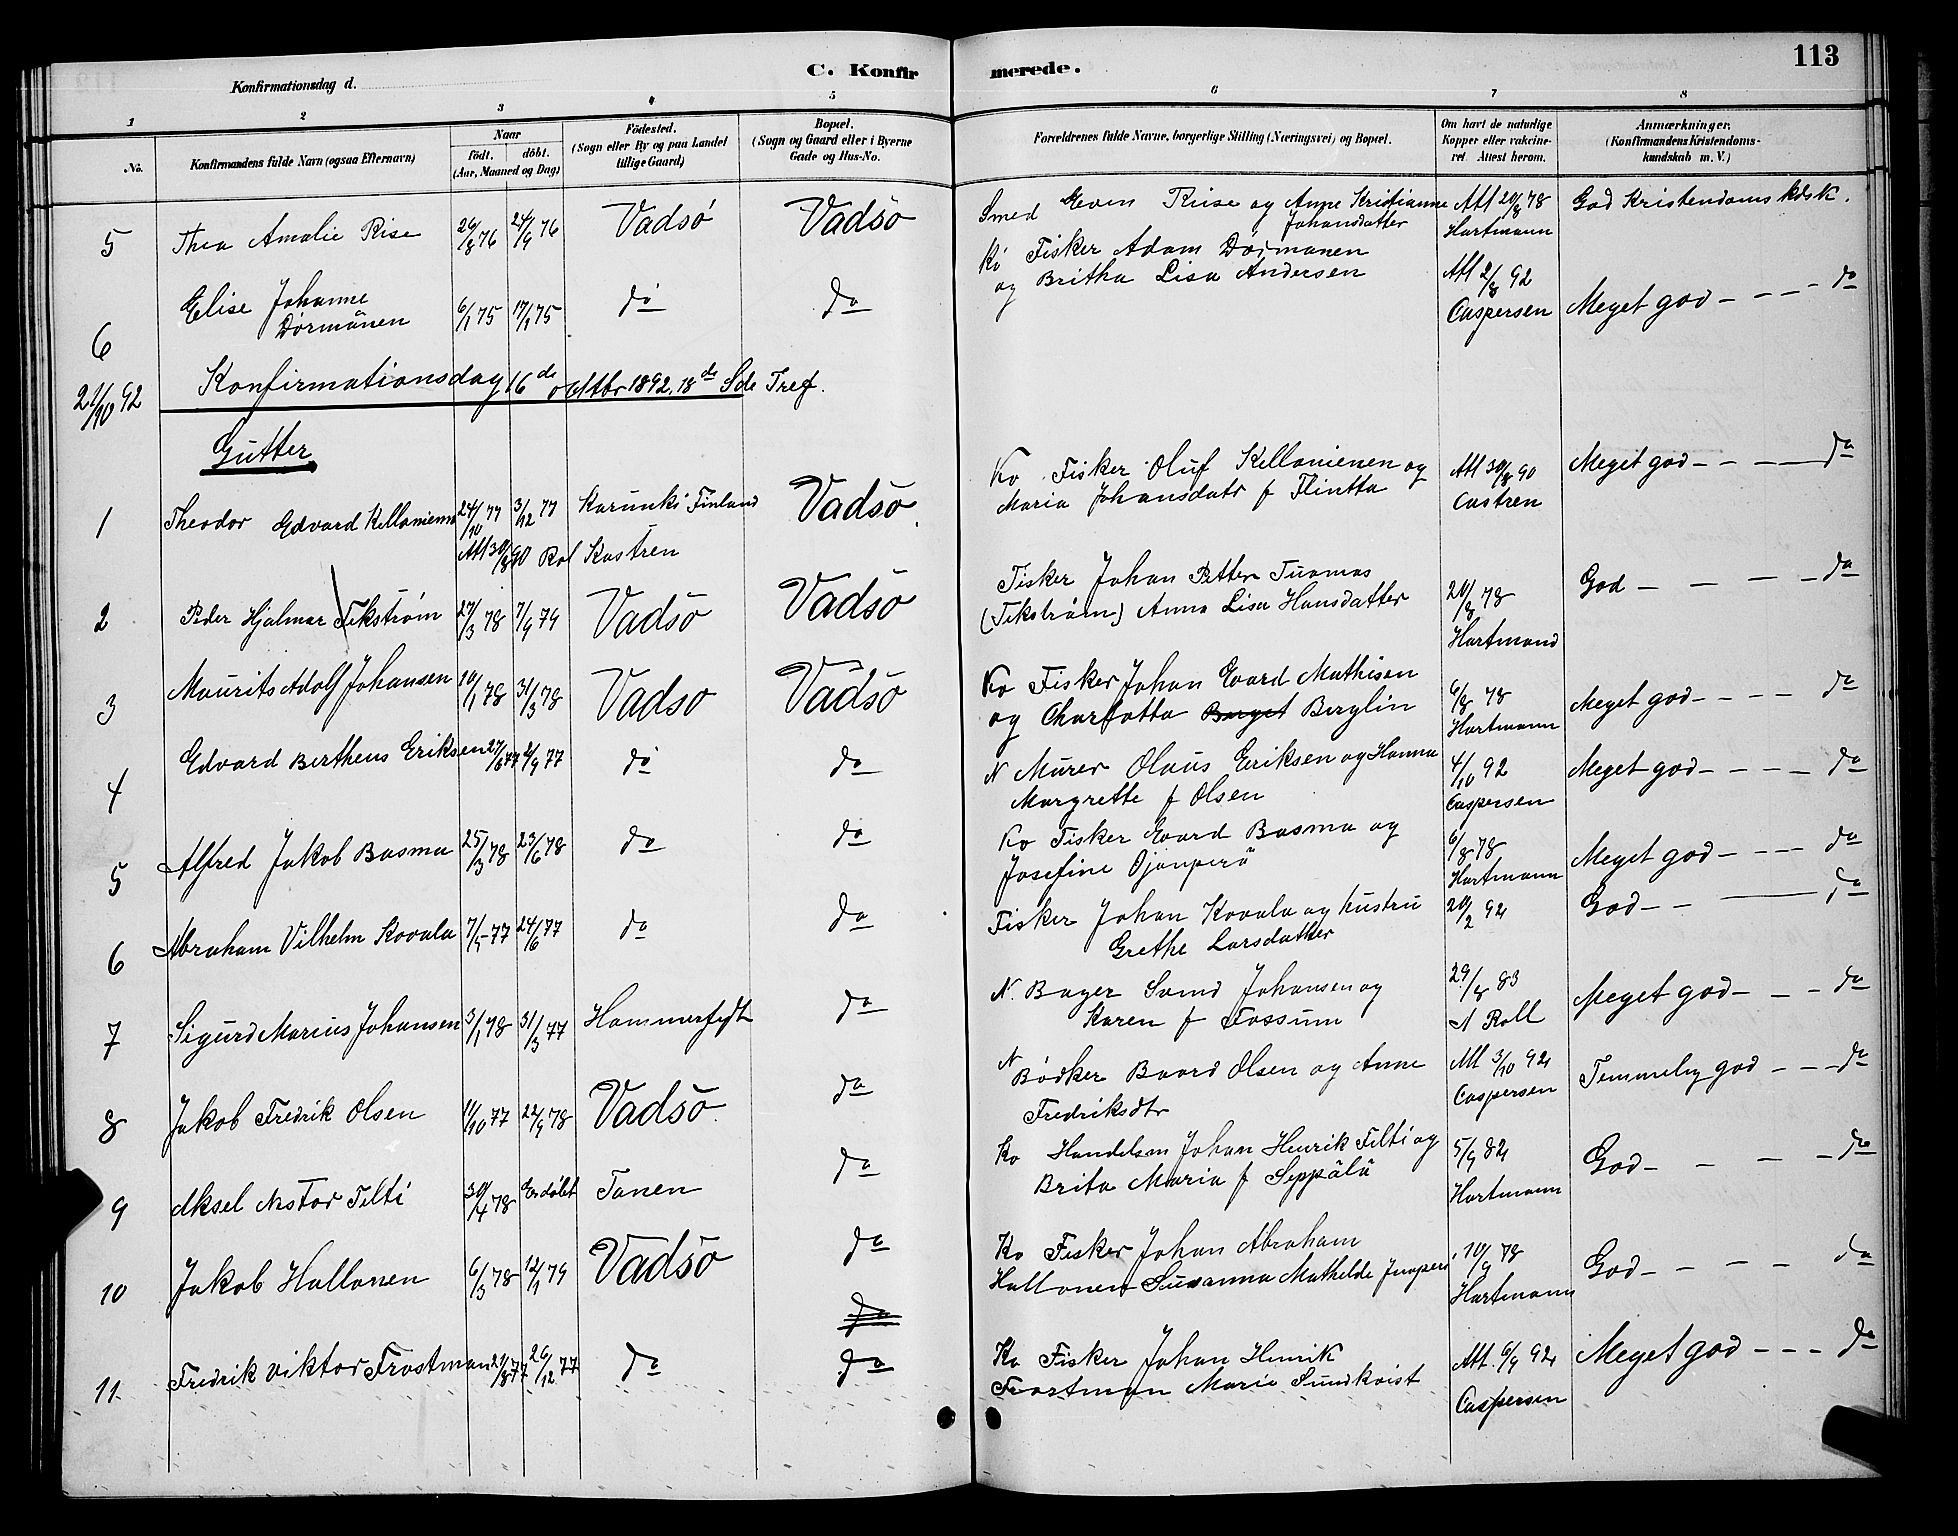 113
Konfirmationsdag d.
C. Konfirmerede.
1 2 3 4 5 6 7 8
No.
Konfirmandens fulde Navn (ogsaa Efternavn)
Naar
født. døbt.
(Aar, Maaned og Dag)
Fødested.
(Sogn eller By og paa Landet
tillige Gaard)
Bopæl.
(Sogn og Gaard eller i Byerne
Gade og Hus-No.
Forældrenes fulde Navne, borgerlige Stilling (Næringsvei) og Bopæl.
Om havt de naturlige
Kopper eller vakcine-
ret. Attest herom.
Anmærkninger.
(Konfirmandens Kristendoms-
kundskab m. V.)
5 Thea Amalie Rise 26/8 76 24/9 76 Vadsö Vadsö Smed Even Riise og Anne Kristianne Att 20/8 78 God Kristendoms kdsk.
Johansdatter Hartmann
6 Elise Johanne 6/1 75 17/1 75 do do Kv Fisker Adam Dörmänen Att 2/8 92 Meget god - - - - do
Dörmänen og Britha Lisa Andersen Caspersen
21/10 92 Konfirmationsdag 16de oktbr 1892, 18de S de Tref.
Gutter
1 Theodor Edvard Kellonienen 24/10 77 3/12 77 Karunki Finland Vadsö Kv Fisker Oluf Kellonienen og Att 30/8 90 Meget god - - - do
Att 30/8 90 Rol Kastren Maria Johansdatr f Flintta Castren
2 Peder Hjalmar Tekström 27/3 78 7/9 79 Vadsö Vadsö Fisker Johan Petter Tuomas 20/8 78 God - - - - do
(Tekström) Anna Lisa Hansdatter Hartmand
3 Maurits Adolf Johansen 10/1 78 31/3 78 Vadsö Vadsö Kv Fisker Johan Evard Mathisen 6/8 78 Meget god - - - - do
og Charlotta Berget Berglin Hartmann
4 Edvard Bertheus Eriksen 27/6 77 2/9 77 do do N Murer Olaus Eriksen og Hanna 4/10 92 Meget god - - - - do
Margrette f Olsen Caspersen
5 Alfred Jakob Basma 25/3 78 23/6 78 do do Kv Fisker Evard Basma og 6/8 78 Meget god - - - - do
Josefine Ojanperä Hartmann
6 Abraham Vilhelm Kovala 7/5 77 24/6 77 do do Fisker Johan Kovala og hustru 20/2 92 God - - - do
Grethe Larsdatter
7 Sigurd Marius Johansen 3/1 78 31/3 77 Hammerfest do N. Bager Svend Johansen og 29/8 83 Meget god - - - do
Karen f Fossum A Roll
8 Jakob Fredrik Olsen 11/10 77 22/9 78 Vadsö do N Bödker Baard Olsen og Anne Att 3/10 92 Temmelig god - - - do
Fredriksdtr Caspersen
9 Aksel Nestor Tilti 30/4 78 Er döbt Tanen do Kv Handelsm Johan Henrik Tilti og 5/9 82 God - - - - do
Brita Maria f Seppälä Hartmann
10 Jakob Hallonen 6/3 78 12/1 79 Vadsö do Kv Fisker Johan Abraham 10/9 78 God - - - - do
Hallonen Susanna Mathilde Hartmann
do
11 Fredrik Viktor Frostman 21/8 77 26/12 77 do do Kv Fisker Johan Henrik Att. 6/9 92 Meget god - - - do
Frostman Marie Sundkvist Caspersen